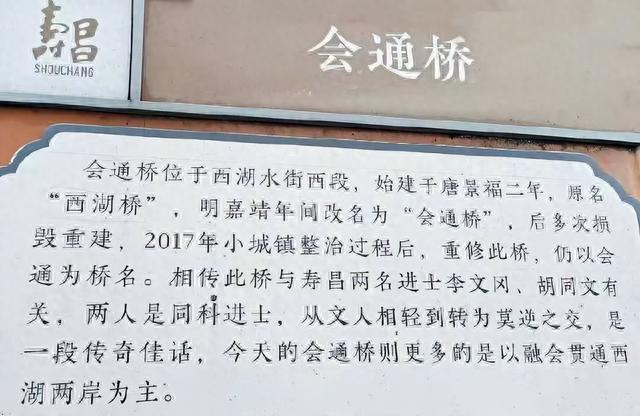 寿昌
SHOUCHANG
会通桥
会通桥位于西湖水街西段，始建于唐景福二年，原名
“西湖桥”，明嘉靖年间改名为“会通桥”，后多次损
毁重建，2017年小城镇整治过程后，重修此桥，仍以会
通为桥名。相传此桥与寿昌两名进士李文冈、胡同文有
关，两人是同科进士，从文人相轻到转为莫逆之交，是
一段传奇佳话，今天的会通桥则更多的是以融会贯通西
湖两岸为主。